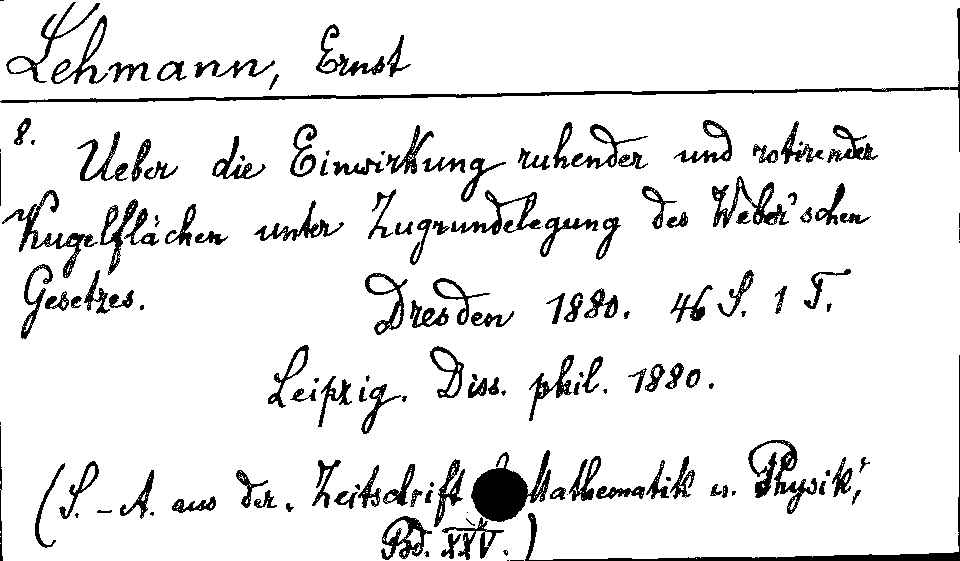 Lehmann, Ernst
8.
Ueber die Einwirkung ruhender und rotirender
Kugelflächen unter Zugrundelegung des Weber'schen
Gesetzes. Dresden 1880. 46 S. 1 T.
Leipzig. Diss. phil. 1880.
(S.-A. aus der „Zeitschrift Mathematik u. Physik,"
Bd. XXV.)